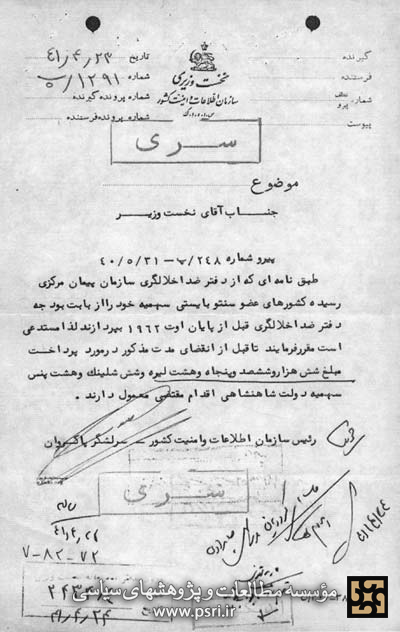 گیرنده
فرستنده
شماره
عطف
پیرو
پیوست
نخست وزیری
سازمان اطلاعات و امنیت کشور
تاریخ ۴۱/۴/۲۳
شماره ۱۲۹۱/
شماره پرونده گیرنده
شماره پرونده فرستنده
سری
موضوع
جناب آقای نخست وزیر
پیرو شماره ۲۴۸/پ-۴۰/۵/۳۱
طبق نامه ای که از دفتر ضد اخلالگری سازمان پیمان مرکزی
رسیده کشورهای عضو سنتو بایستی سهمیه خود را از بابت بودجه
دفتر ضد اخلالگری قبل از پایان اوت ۱۹۶۲ بپردازند لذا مستدعی
است مقرر فرمایند تا قبل از انقضای مدت مذکور در مورد پرداخت
مبلغ شش هزار و ششصد و پنجاه و هشت لیره و شش شلینگ و هشت پنس
سهمیه دولت شاهنشاهی اقدام مقتضی معمول دارند.
رئیس سازمان اطلاعات و امنیت کشور – سرلشگر پاکروان
سری
۷-۸۲-۷۲
۴۱/۴/۲۴
مؤسسه مطالعات و پژوهشهای سیاسی
www.psri.ir